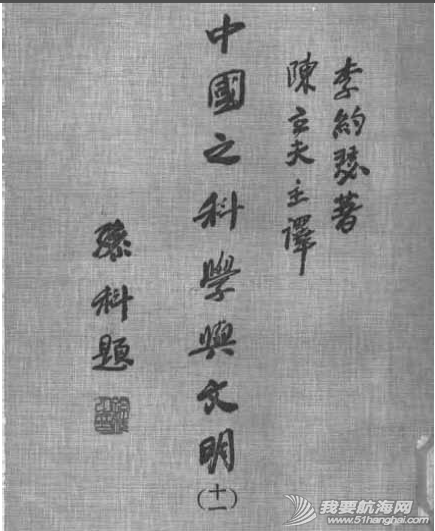 李約瑟著
陳立夫主譯
中國之科學與文明
(十一)
孫科題
我要航海网
www.51hanghai.com